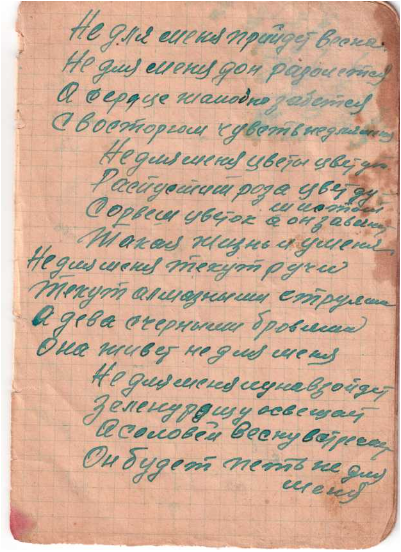 Не для меня придет весна
Не для меня дон разольется
А сердце жалобно забьется
С восторгом чувств не для меня
Не для меня цветы цветут
Распустит роза цвет ду
шистый
Сорвем цветок а он завянет
Такая жизнь и у меня
Не для меня текут ручи
Текут алмазными струями
А дева с черными бровями
Она живет не для меня
Не для меня луна взойдет
Зелену рощу освещая
А соловей весну встречая
Он будет петь не для
меня